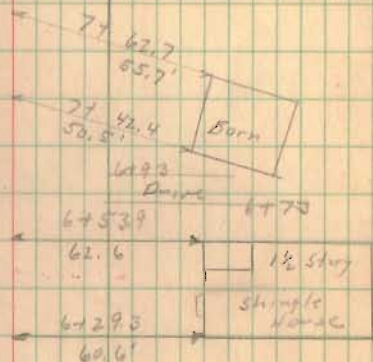 7+ 62.7
65.7'
7+ 42.4
50.5'
Barn
6+93
Drive
6+73
6+53.9
62.6
1½ Story
Shingle
House
6+29.3
60.6'